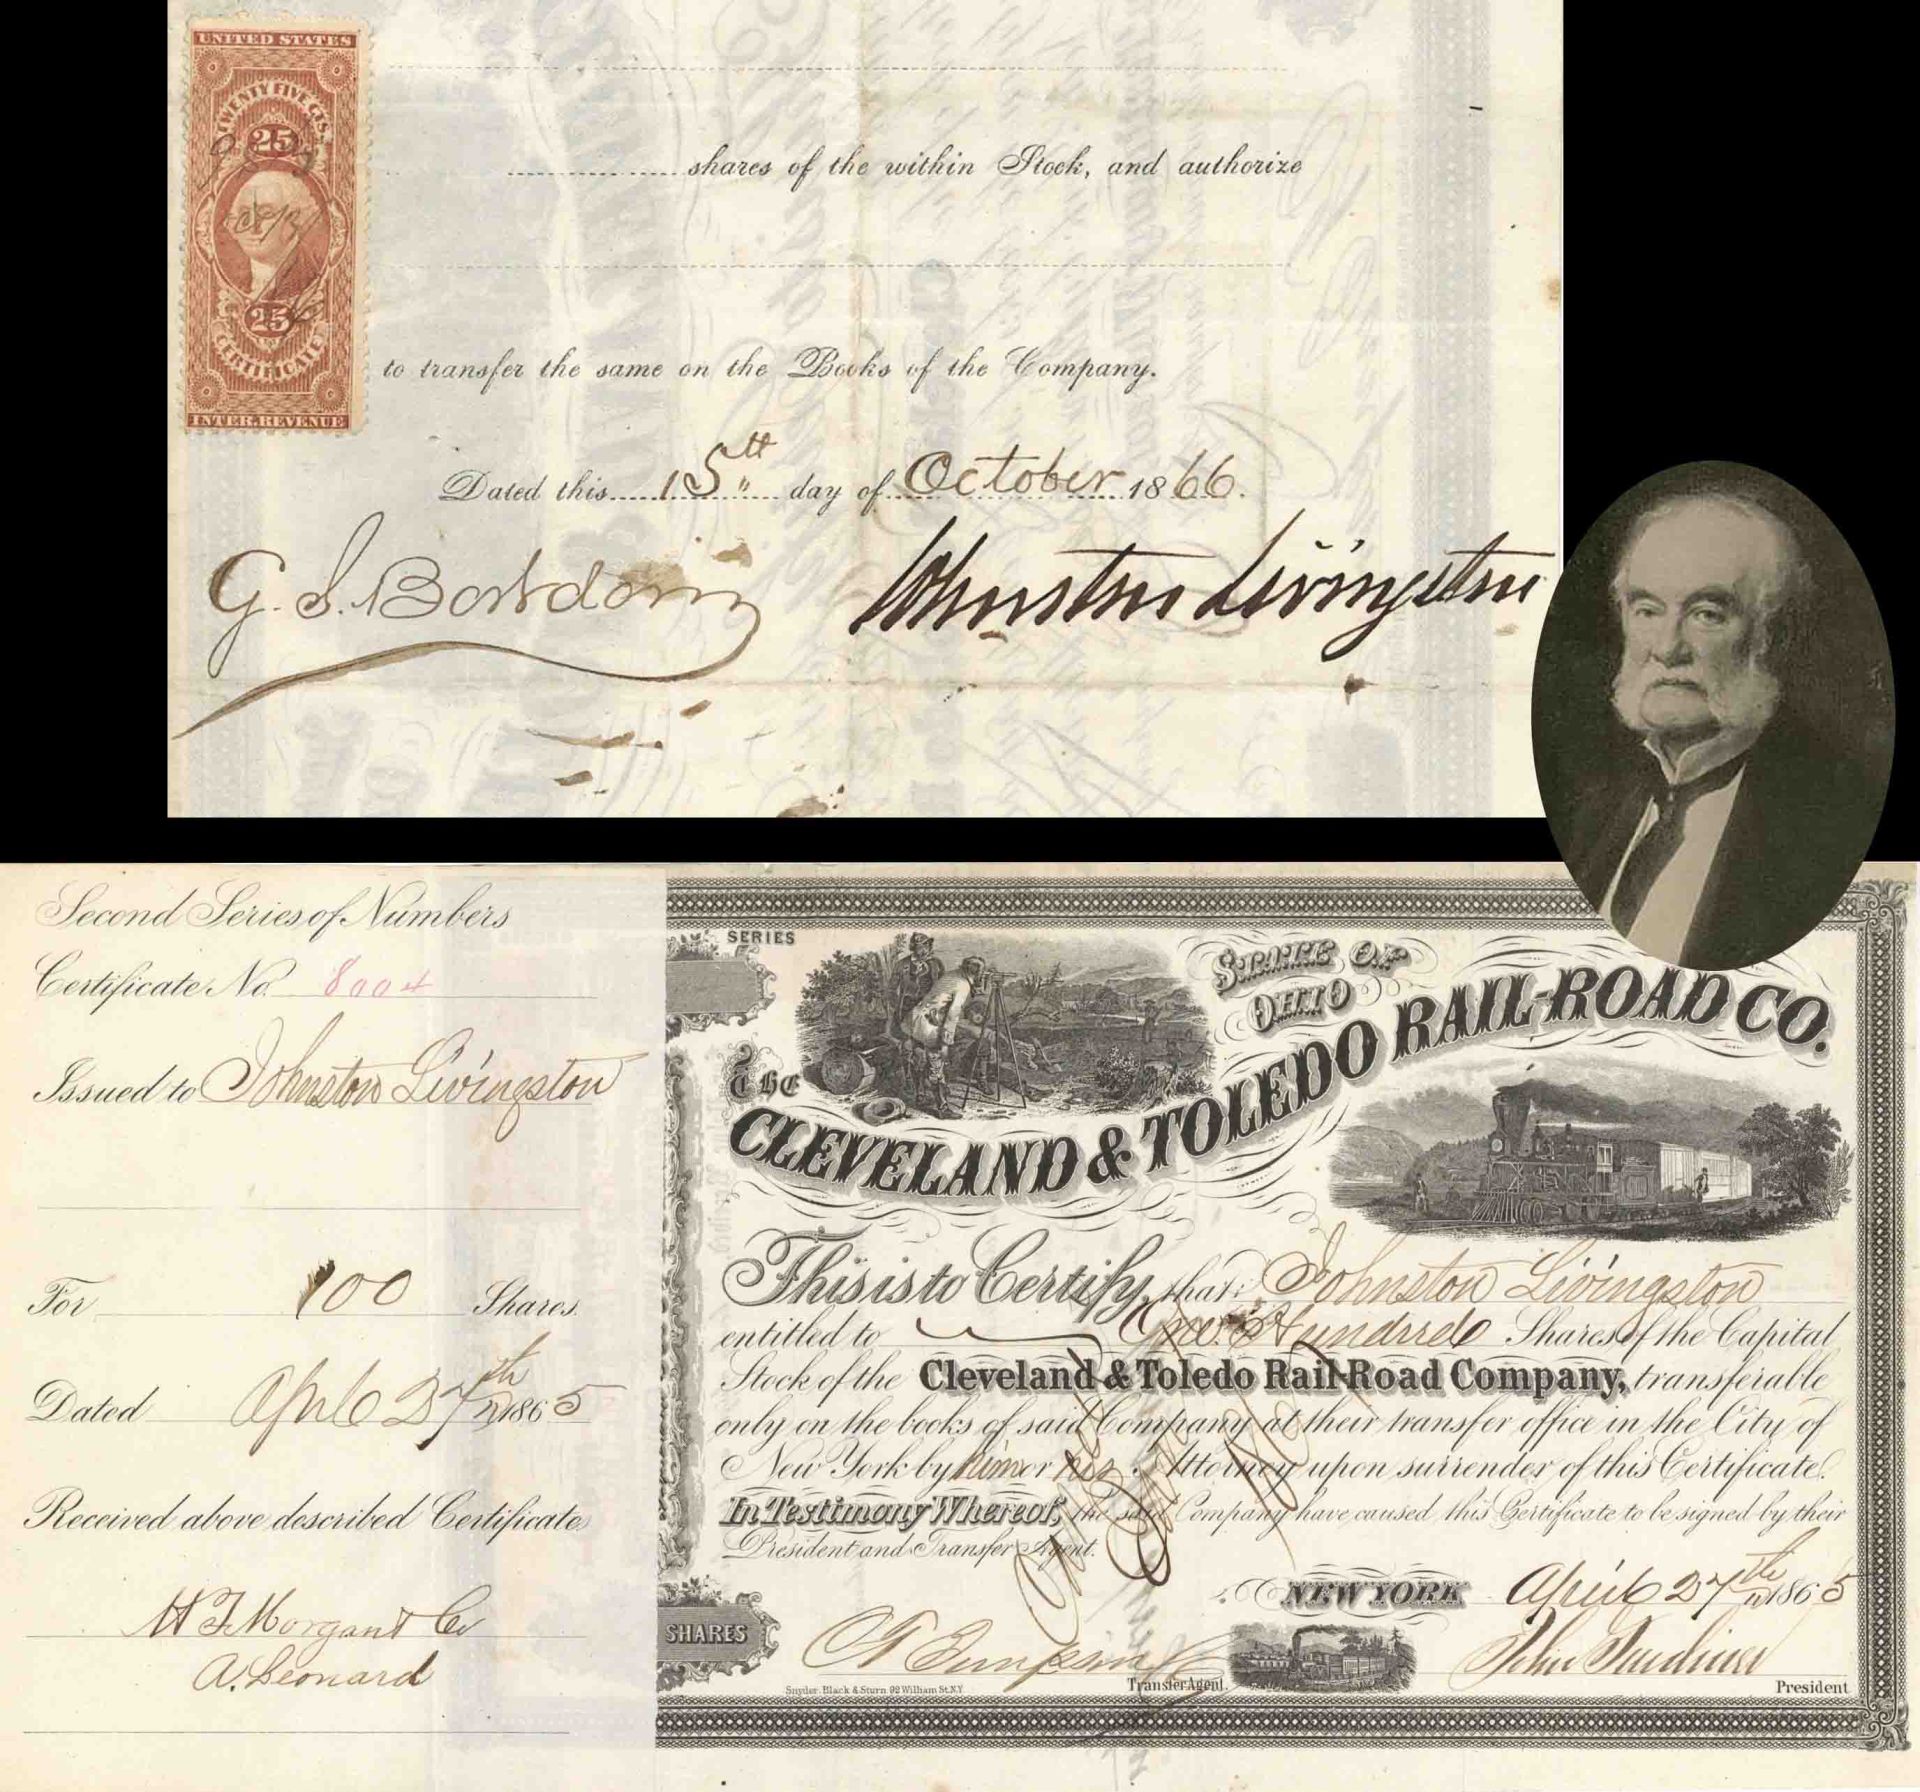 UNITED STATES
TWENTY FIVE CTS.
25
25
CERTIFICATE
INTER. REVENUE
shares of the within Stock, and authorize
to transfer the same on the Books of the Company.
Dated this 15th day of October 1866.
Johnston Livingston
Second Series of Numbers
Certificate No. 8004
Issued to Johnston Livingston
For 100 Shares
Dated April 27th 1865
Received above described Certificate
Morgan & Co
A. Leonard
SERIES
STATE OF
OHIO
THE
CLEVELAND & TOLEDO RAIL-ROAD CO.
This is to Certify, that Johnston Livingston
entitled to One Hundred Shares of the Capital
Stock of the Cleveland & Toledo Rail-Road Company, transferable
only on the books of said Company at their transfer office in the City of
New York by him or his Attorney upon surrender of this Certificate.
In Testimony Whereof, the said Company have caused this Certificate to be signed by their
President and Transfer Agent.
NEW YORK April 27th 1865
SHARES
Transfer Agent.
John Gardiner
President
Snyder, Black & Sturn 92 William St. N.Y.